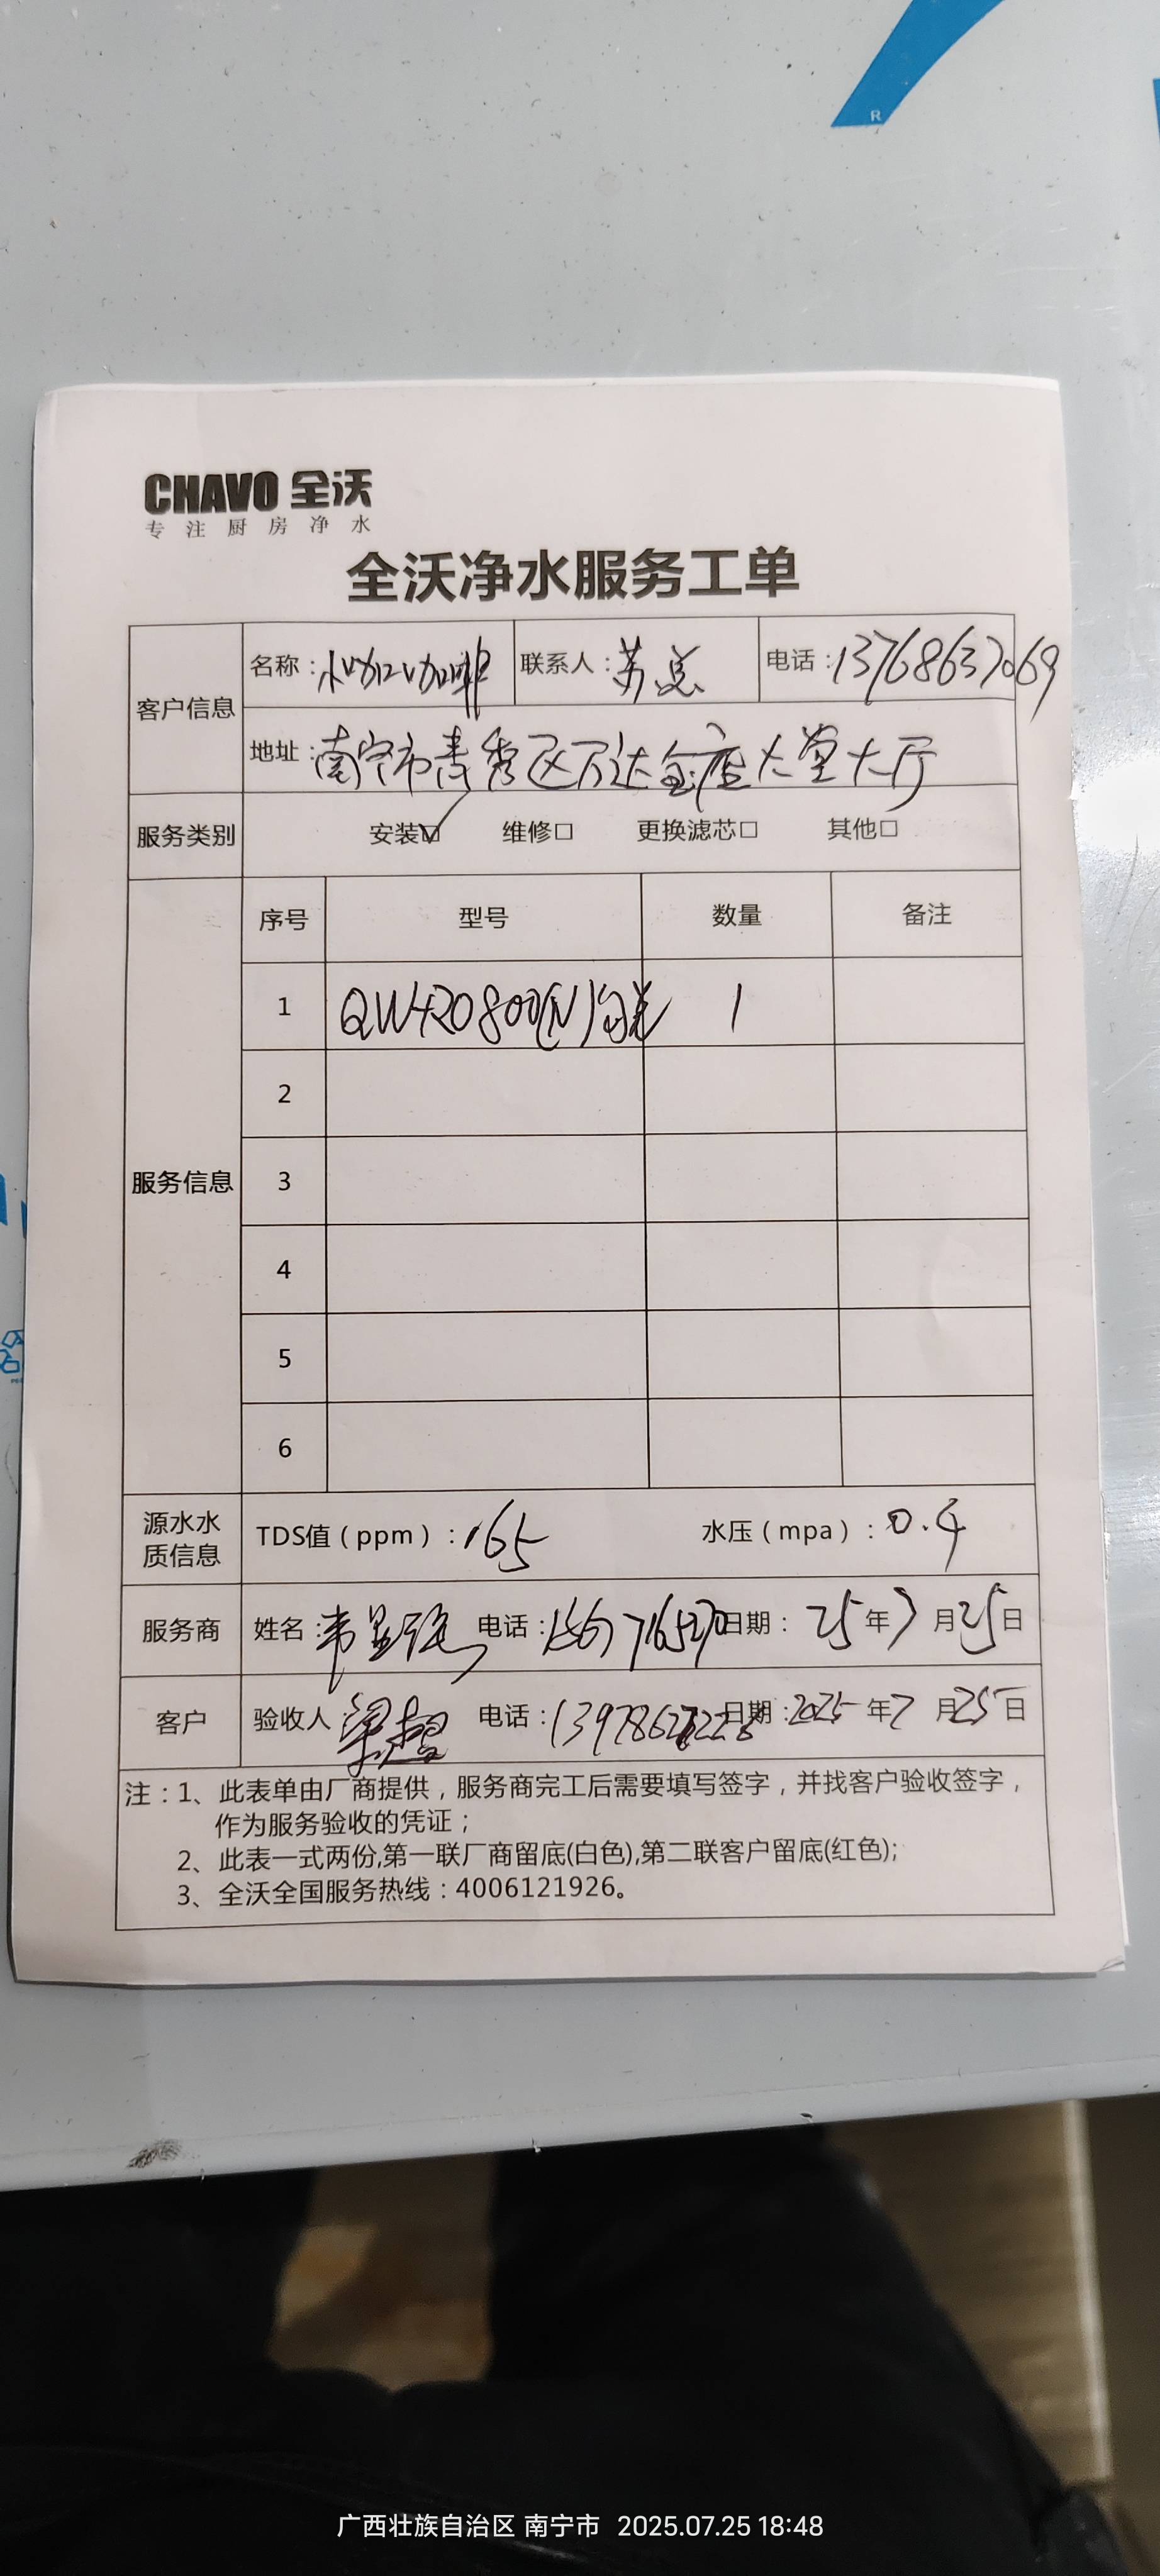 R
CHAVO 全沃
专注厨房净水
全沃净水服务工单
客户信息
名称: 咖啡 联系人: 苏总 电话: 13768637069
地址: 南宁市青秀区万达金座大堂大厅
服务类别 安装☑ 维修□ 更换滤芯□ 其他□
服务信息
序号 型号 数量 备注
1 QW-RO800(N) 1
2
3
4
5
6
源水水质信息 TDS值（ppm）: 165 水压（mpa）: 0.4
服务商 姓名: 韦 电话: 日期: 25年7月25日
客户 验收人: 梁 电话: 日期: 2025年7月25日
注：1、此表单由厂商提供，服务商完工后需要填写签字，并找客户验收签字，
作为服务验收的凭证；
2、此表一式两份,第一联厂商留底(白色),第二联客户留底(红色);
3、全沃全国服务热线：4006121926。
广西壮族自治区 南宁市 2025.07.25 18:48